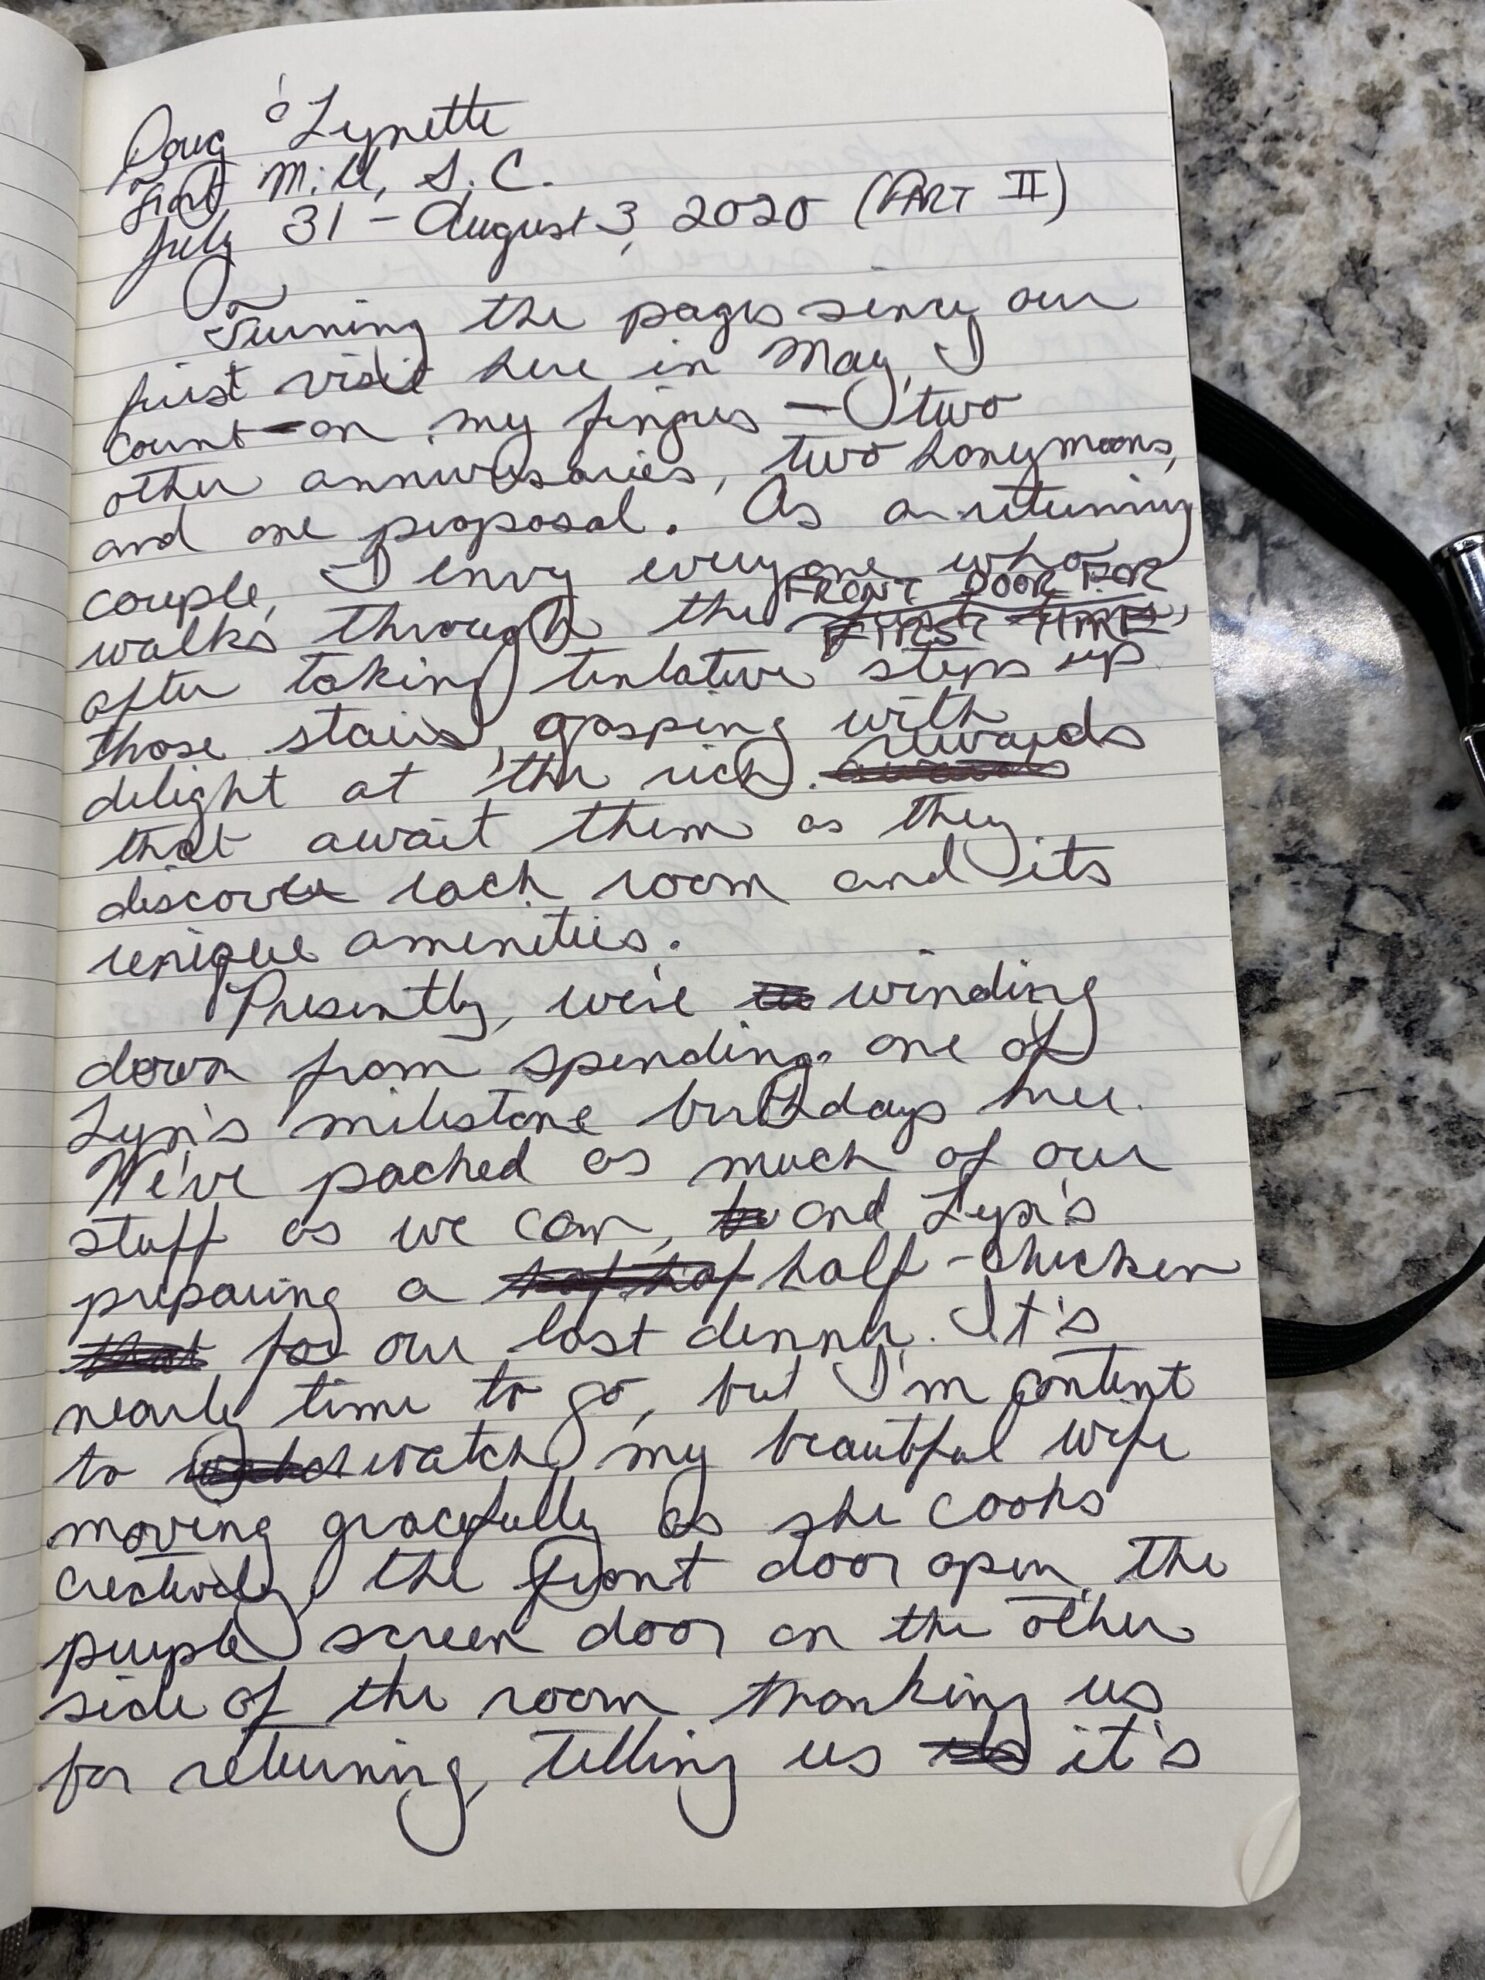 Doug & Lynette
Fort Mill, S.C.
July 31 - August 3, 2020 (PART II)
Turning the pages since our
first visit here in May, I
count on my fingers — two
other anniversaries, two honymoons,
and one proposal. As a returning
couple, I envy everyone who
walks through the FRONT DOOR FOR
FIRST TIME,
after taking tentative steps up
those stairs, gasping with
delight at the rich rewards
that await them as they
discover each room and its
unique amenities.
Presently, we're winding
down from spending one of
Lyn's milestone birthdays here.
We've packed as much of our
stuff as we can, and Lyn's
preparing a half-chicken
for our last dinner. It's
nearly time to go, but I'm content
to watch my beautiful wife
moving gracefully as she cooks
creatively, the front door open, the
purple screen door on the other
side of the room thanking us
for returning, telling us it's